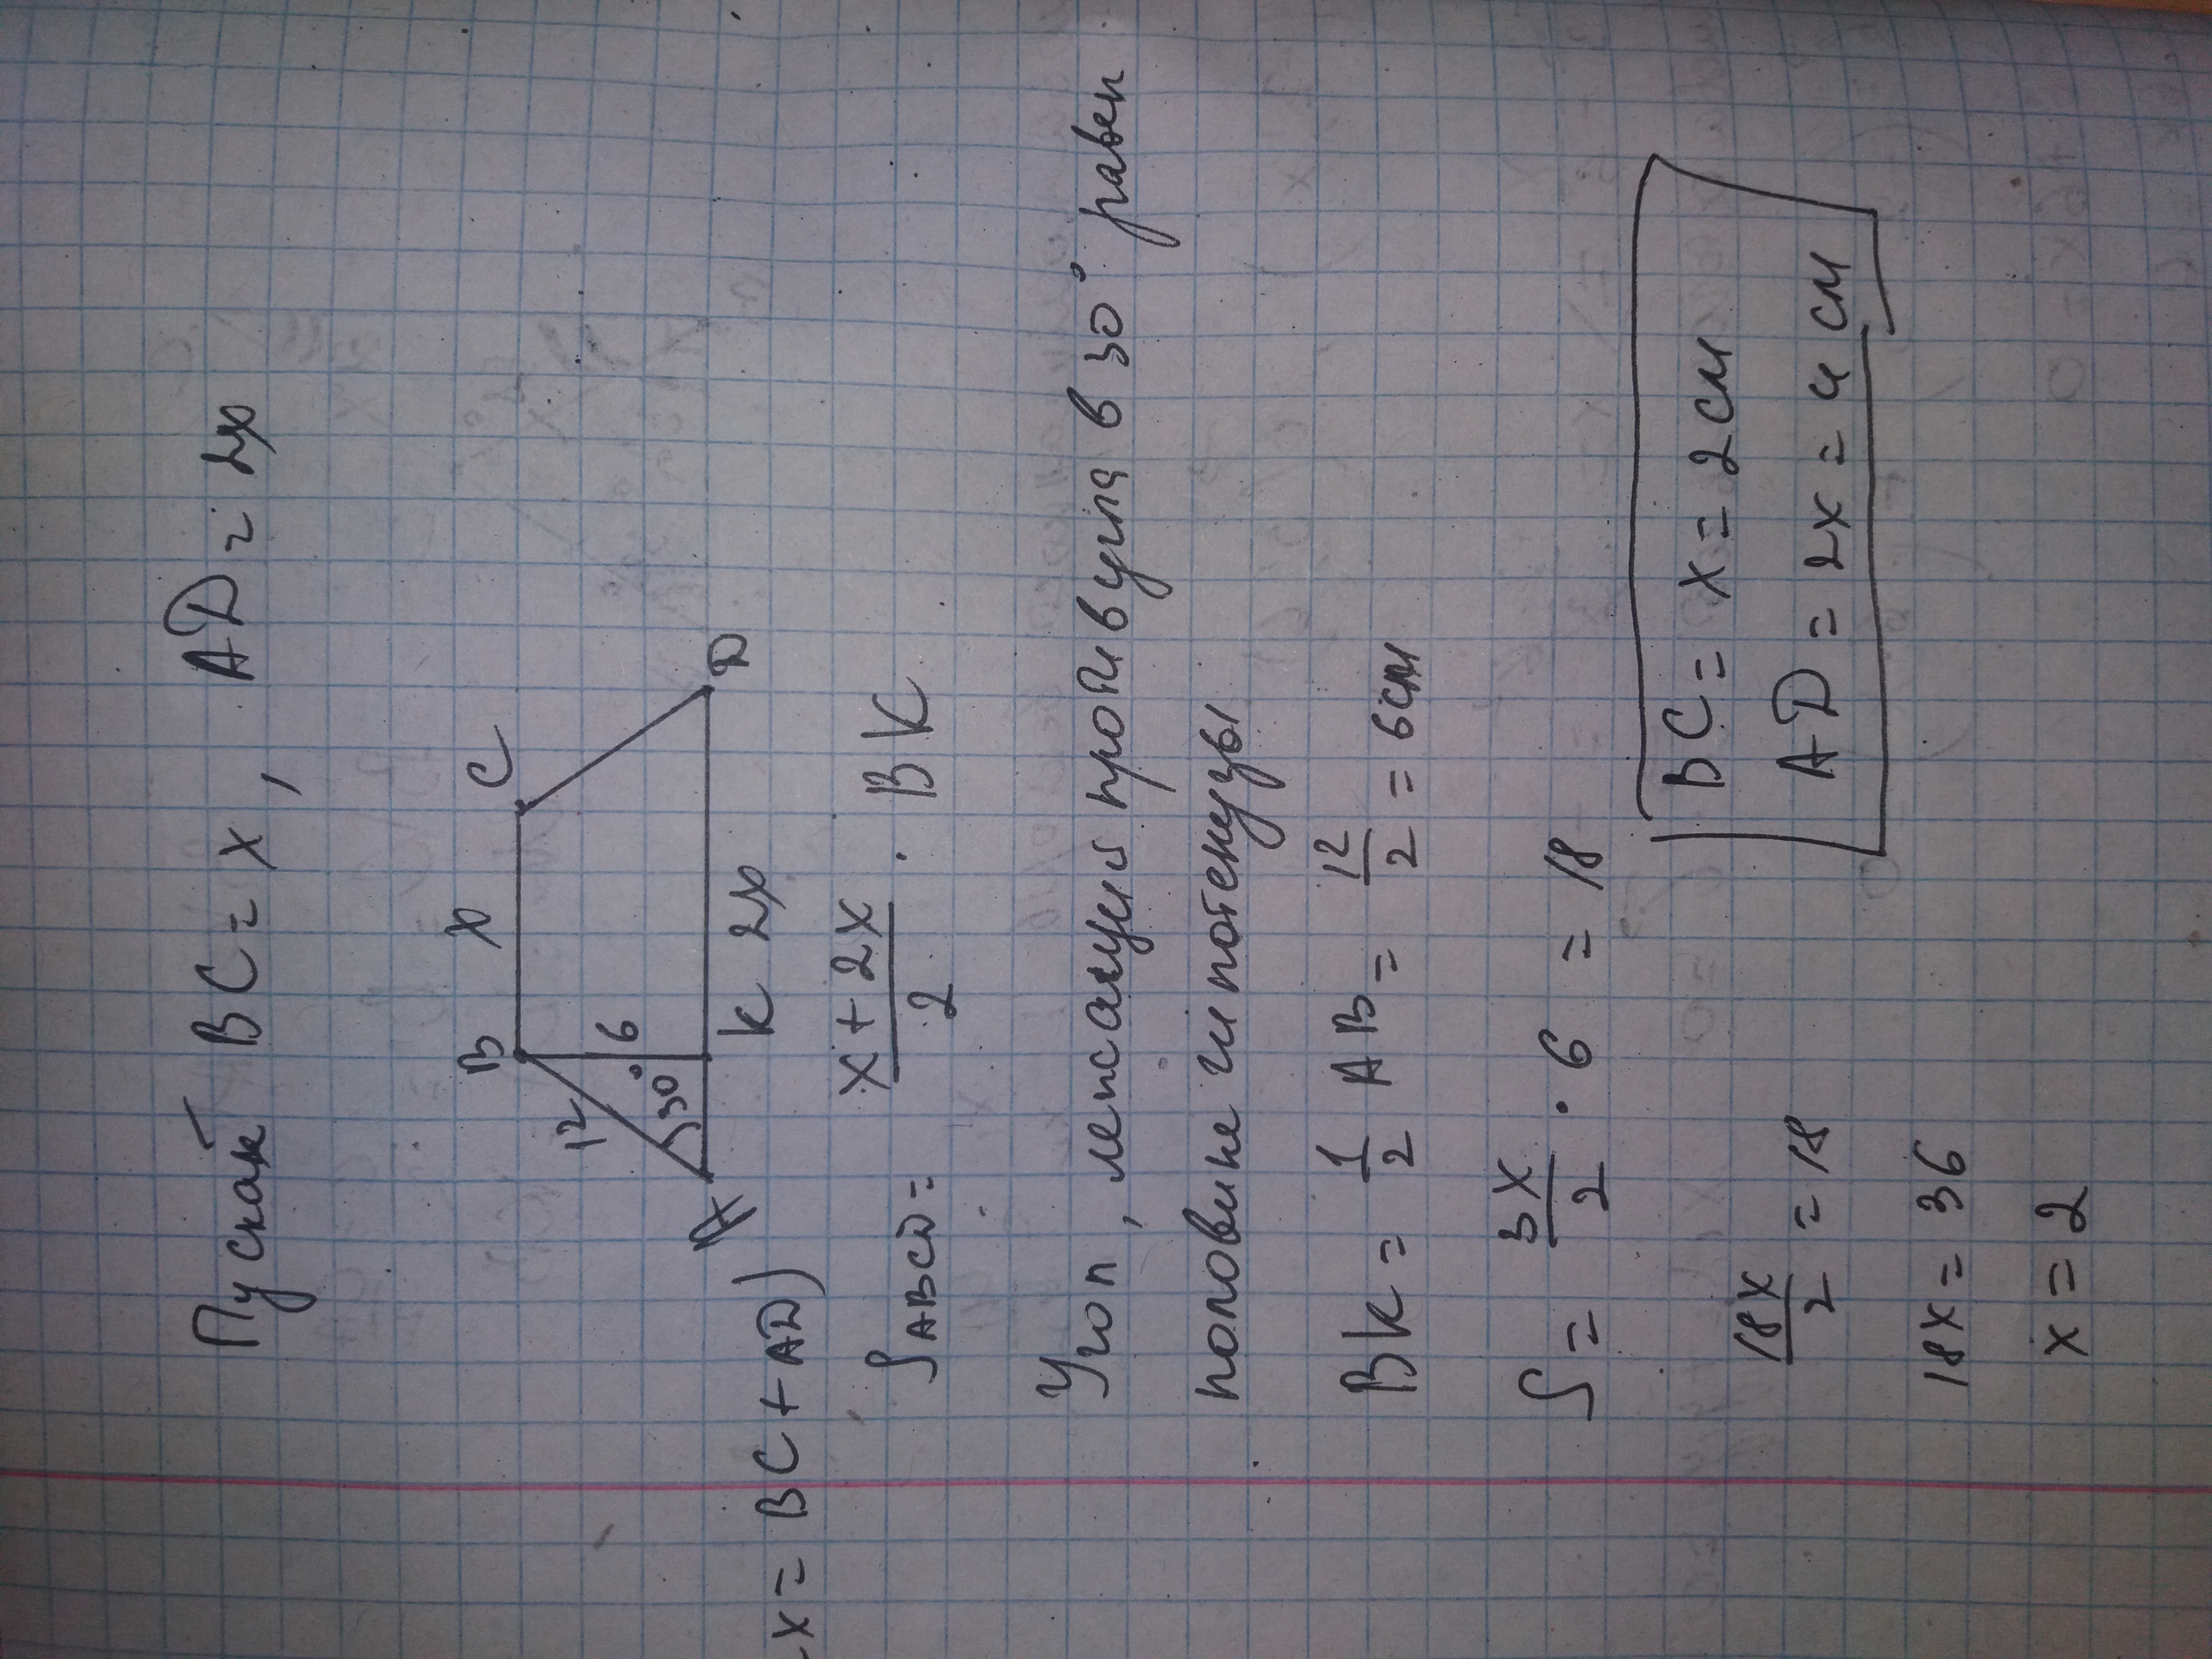 Пускай BC = x, AD = 2x
B x C
12 6
30°
A K 2x D
x = BC + AD)
S ABCD = \frac{x + 2x}{2} · BK
Угол, лежащий против угла в 30° равен
половине гипотенузы
BK = \frac{1}{2} AB = \frac{12}{2} = 6 см
S = \frac{3x}{2} · 6 = 18
\frac{18x}{2} = 18
18x = 36
x = 2
BC = x = 2 см
AD = 2x = 4 см